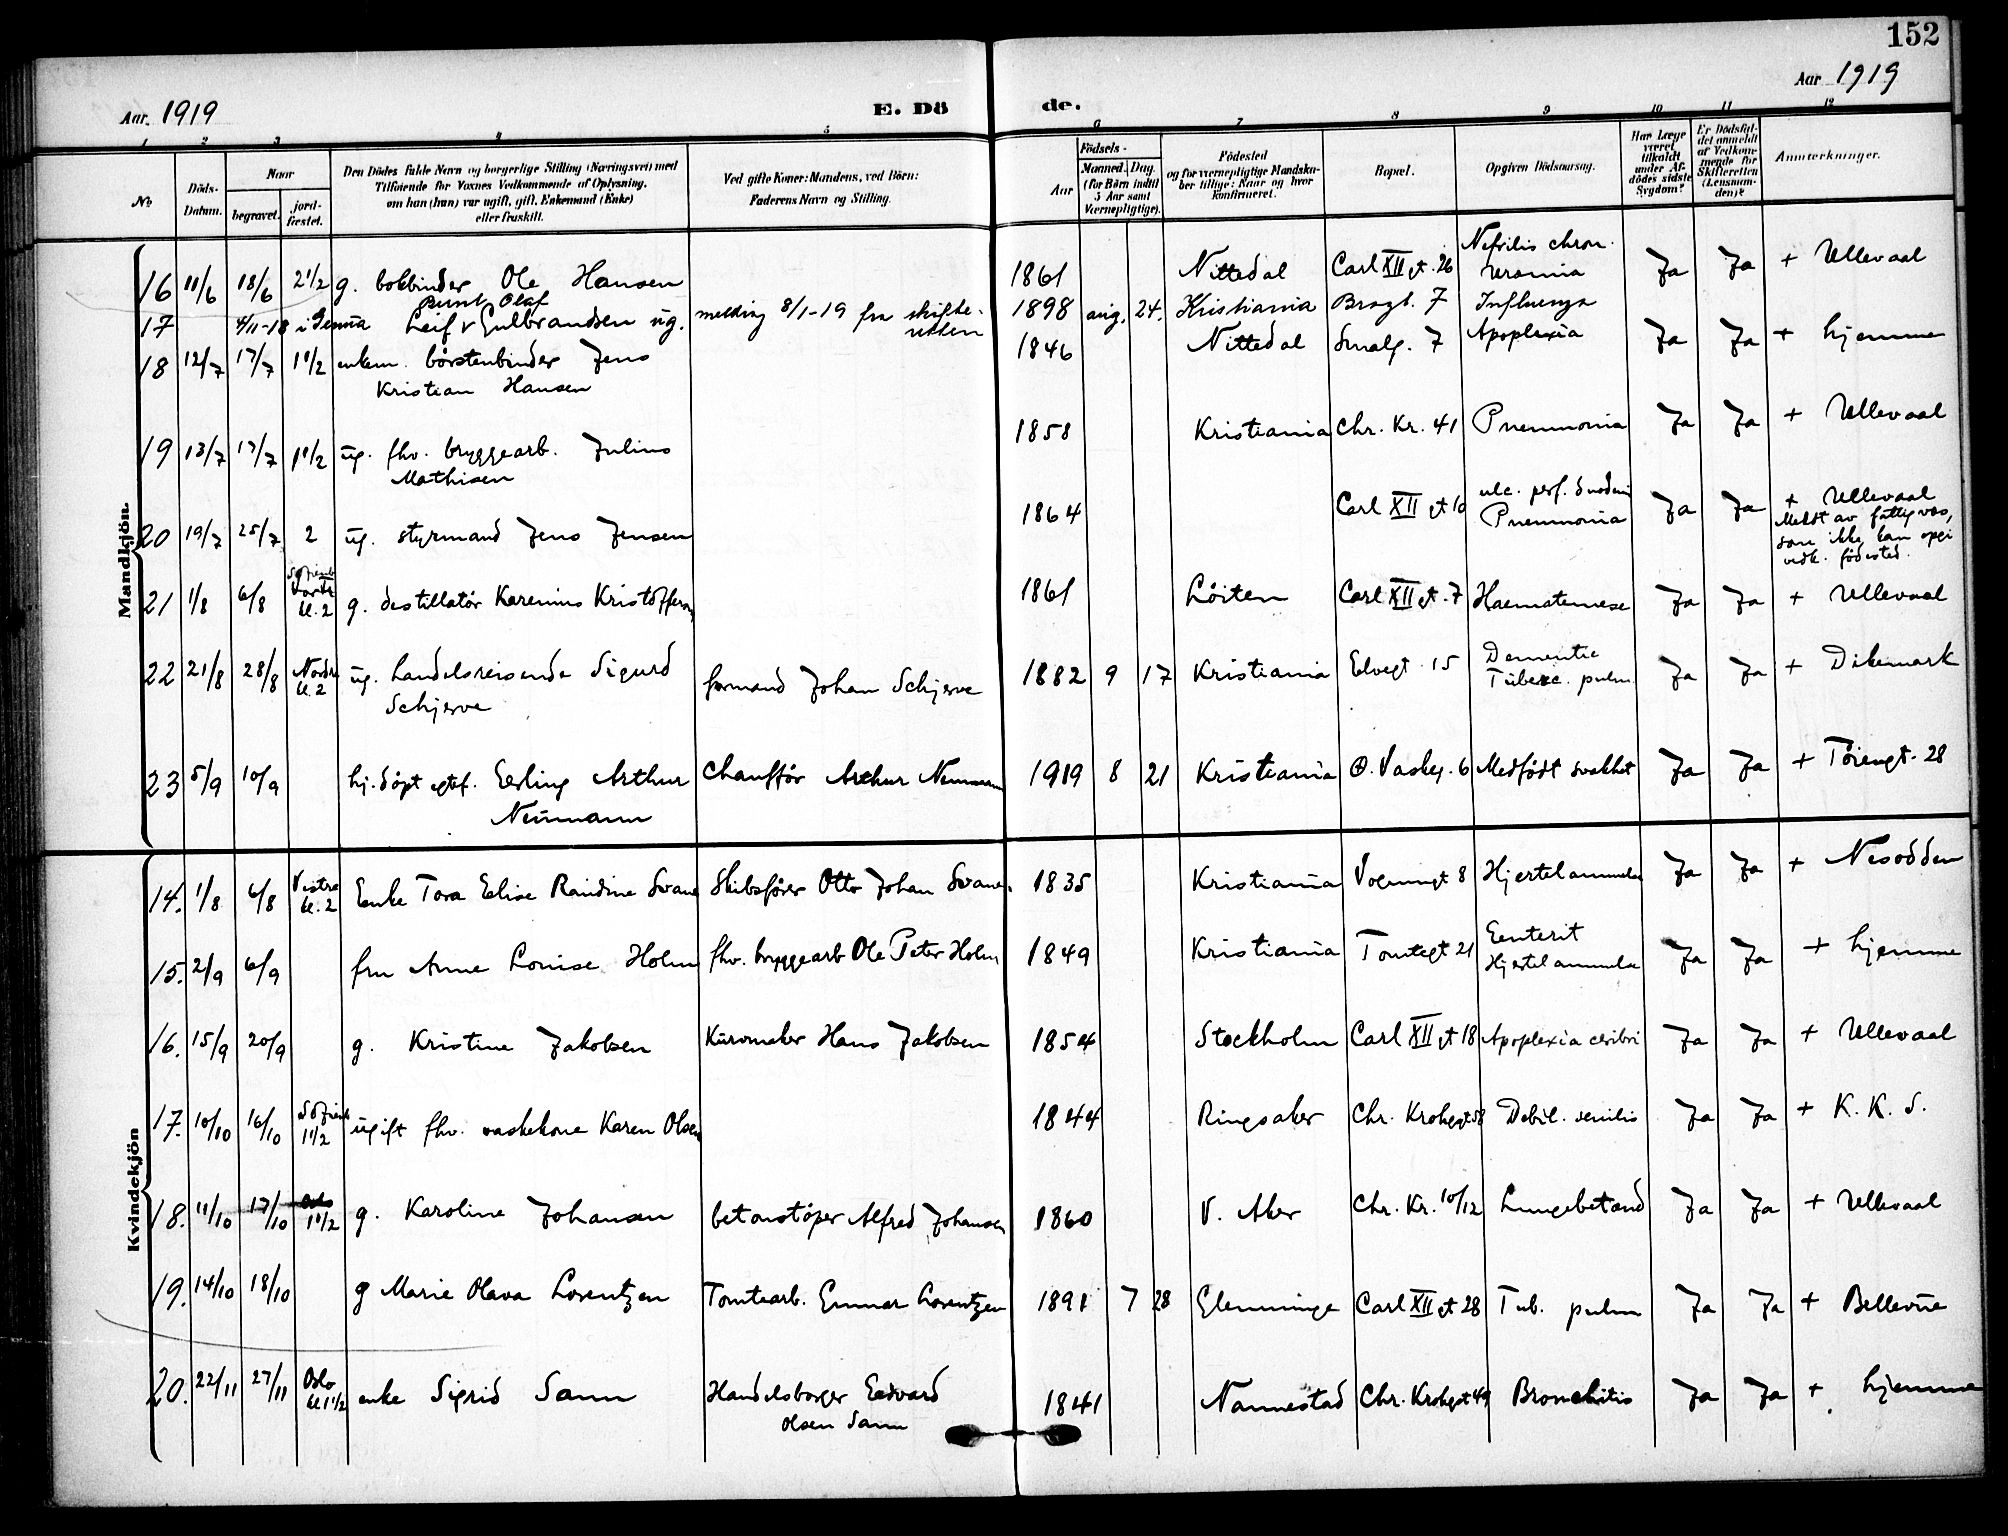 152
Aar. 1919
E. Dö
de.
Aar 1919
1 2 3 4 5 6 7 8 9 10 11 12
No
Döds-Datum.
Naar
begravet.
jord-fæstet.
Den Dödes fulde Navn og borgerlige Stilling (Næringsvei) med
Tilföiende for Voxnes Vedkommende af Oplysning,
om han (hun) var ugift, gift, Enkemand (Enke)
eller fraskilt.
Ved gifte Koner: Mandens, ved Börn:
Faderens Navn og Stilling.
Födsels-
Aar
Maaned. Dag.
(for Börn indtil
5 Aar samt
Værnepligtige).
Födested
og for værnepligtige Mandska-
ber tillige: Naar og hvor
konfirmeret.
Bopæl.
Opgiven Dödsaarsag.
Har Læge
været
tilkaldt
under Af-
dödes sidste
Sygdom?
Er Dödsfal-
det anmeldt
af Vedkom-
mende for
Skifteretten
(Lensman-
den)?
Anmærkninger.
Mandkjön.
16 11/6 18/6 2 1/2 g. bokbinder Ole Hansen 1861 Nittedal Carl XII gt. 26 Nefritis chron. Uramia Ja Ja + Ullevaal
Bernt Olaf
17 4/11-18 i Genua Leif v Gulbrandsen ug. melding 8/1-19 fra skifte-retten 1898 aug. 24. Kristiania Bragt. 7 Influenza
18 12/7 17/7 1 1/2 enkem. börstenbinder Jens 1846 Nittedal Smalg. 7 Apoplexia Ja Ja + hjemme
Kristian Hansen
19 13/7 17/7 1 1/2 ug. fhv. bryggearb. Julius 1858 Kristiania Chr. Kr. 41 Pneumonia Ja Ja + Ullevaal
Mathisen
20 19/7 25/7 2 ug. styrmand Jens Jensen 1864 Carl XII gt 10 ulc. perf. duodeni Pneumonia Ja Ja + Ullevaal
Meldt av fattigvæs,
som ikke kan opgi
vedk. födested.
21 1/8 6/8 kl. 2 g. destillatör Karenius Kristoffersen 1861 Löiten Carl XII gt. 7 Haematemese Ja Ja + Ullevaal
22 21/8 28/8 Nordre kl. 2 ug. handelsreisende Sigurd formand Johan Schjerve 1882 9 17 Kristiania Elvegt. 15 Dementie Tuberc. pulm. Ja Ja + Dikemark
Schjerve
23 5/9 10/9 hj. döpt egtef. Erling Arthur Chaufför Arthur Neumann 1919 8 21 Kristiania O. Vaskeg. 6 Medfödt svakhet Ja Ja + Töiengt. 28
Neumann
Kvindekjön
14. 1/8 6/8 Vestre kl. 2 Enke Tora Elise Randine Svane Skibsförer Otto Johan Svane. 1835 Kristiania Vognmgt 8 Hjertelammelse Ja Ja + Nesodden
15. 2/9 6/9 fru Anne Louise Holm fhv. bryggearb Ole Peter Holm 1849 Kristiania Tomtegt 21 Enterit Hjertelammelse Ja Ja + hjemme
16. 15/9 20/9 g. Kristine Jakobsen Kurvmaker Hans Jakobsen 1854 Stockholm Carl XII gt 18 Apoplexia ceribri Ja Ja + Ullevaal
17. 10/10 16/10 1 1/2 ugift fhv. vaskekone Karen Olsen 1844 Ringsaker Chr. Krohgsgt 58 Debil. senilis Ja Ja + K. K. S.
18. 11/10 17/10 1 1/2 g. Karoline Johansen betonstöper Alfred Johansen 1860 V. Aker Chr. Kr. 10/12 Lungebetænd Ja Ja + Ullevaal
19. 14/10 18/10 g Marie Olava Lorentzen Tomtearb. Gunnar Lorentzen 1891 7 28 Glemminge Carl XII gt 28 Tub. pulm Ja Ja + Bellevue
20. 22/11 27/11 Oslo kl 1 1/2 enke Sigrid Sann Handelsborger Edvard 1841 Nannestad Chr. Krohgsgt 49 Bronchitis Ja Ja + hjemme
Olsen Sann